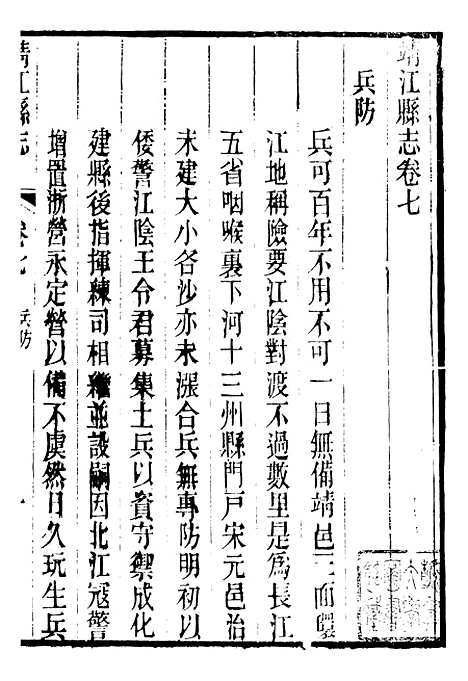 靖江縣志卷七
兵防
兵可百年不用不可一日無備靖邑三面臨
江地稱險要江陰對渡不過數里是為長江
五省咽喉裏下河十三州縣門戸宋元邑治
未建大小各沙亦未漲合兵無專防明初以
倭警江陰王令君募集土兵以資守禦成化
建縣後指揮練司相繼並設嗣因北江寇警
增置浙營永定營以備不虞然日久玩生兵
靖江縣志
卷七
兵防
一